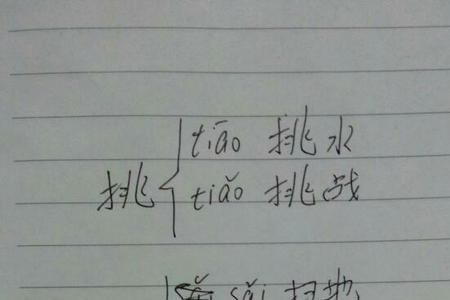 挑 tiāo 挑水
tiǎo 挑战
sǎi 扫地